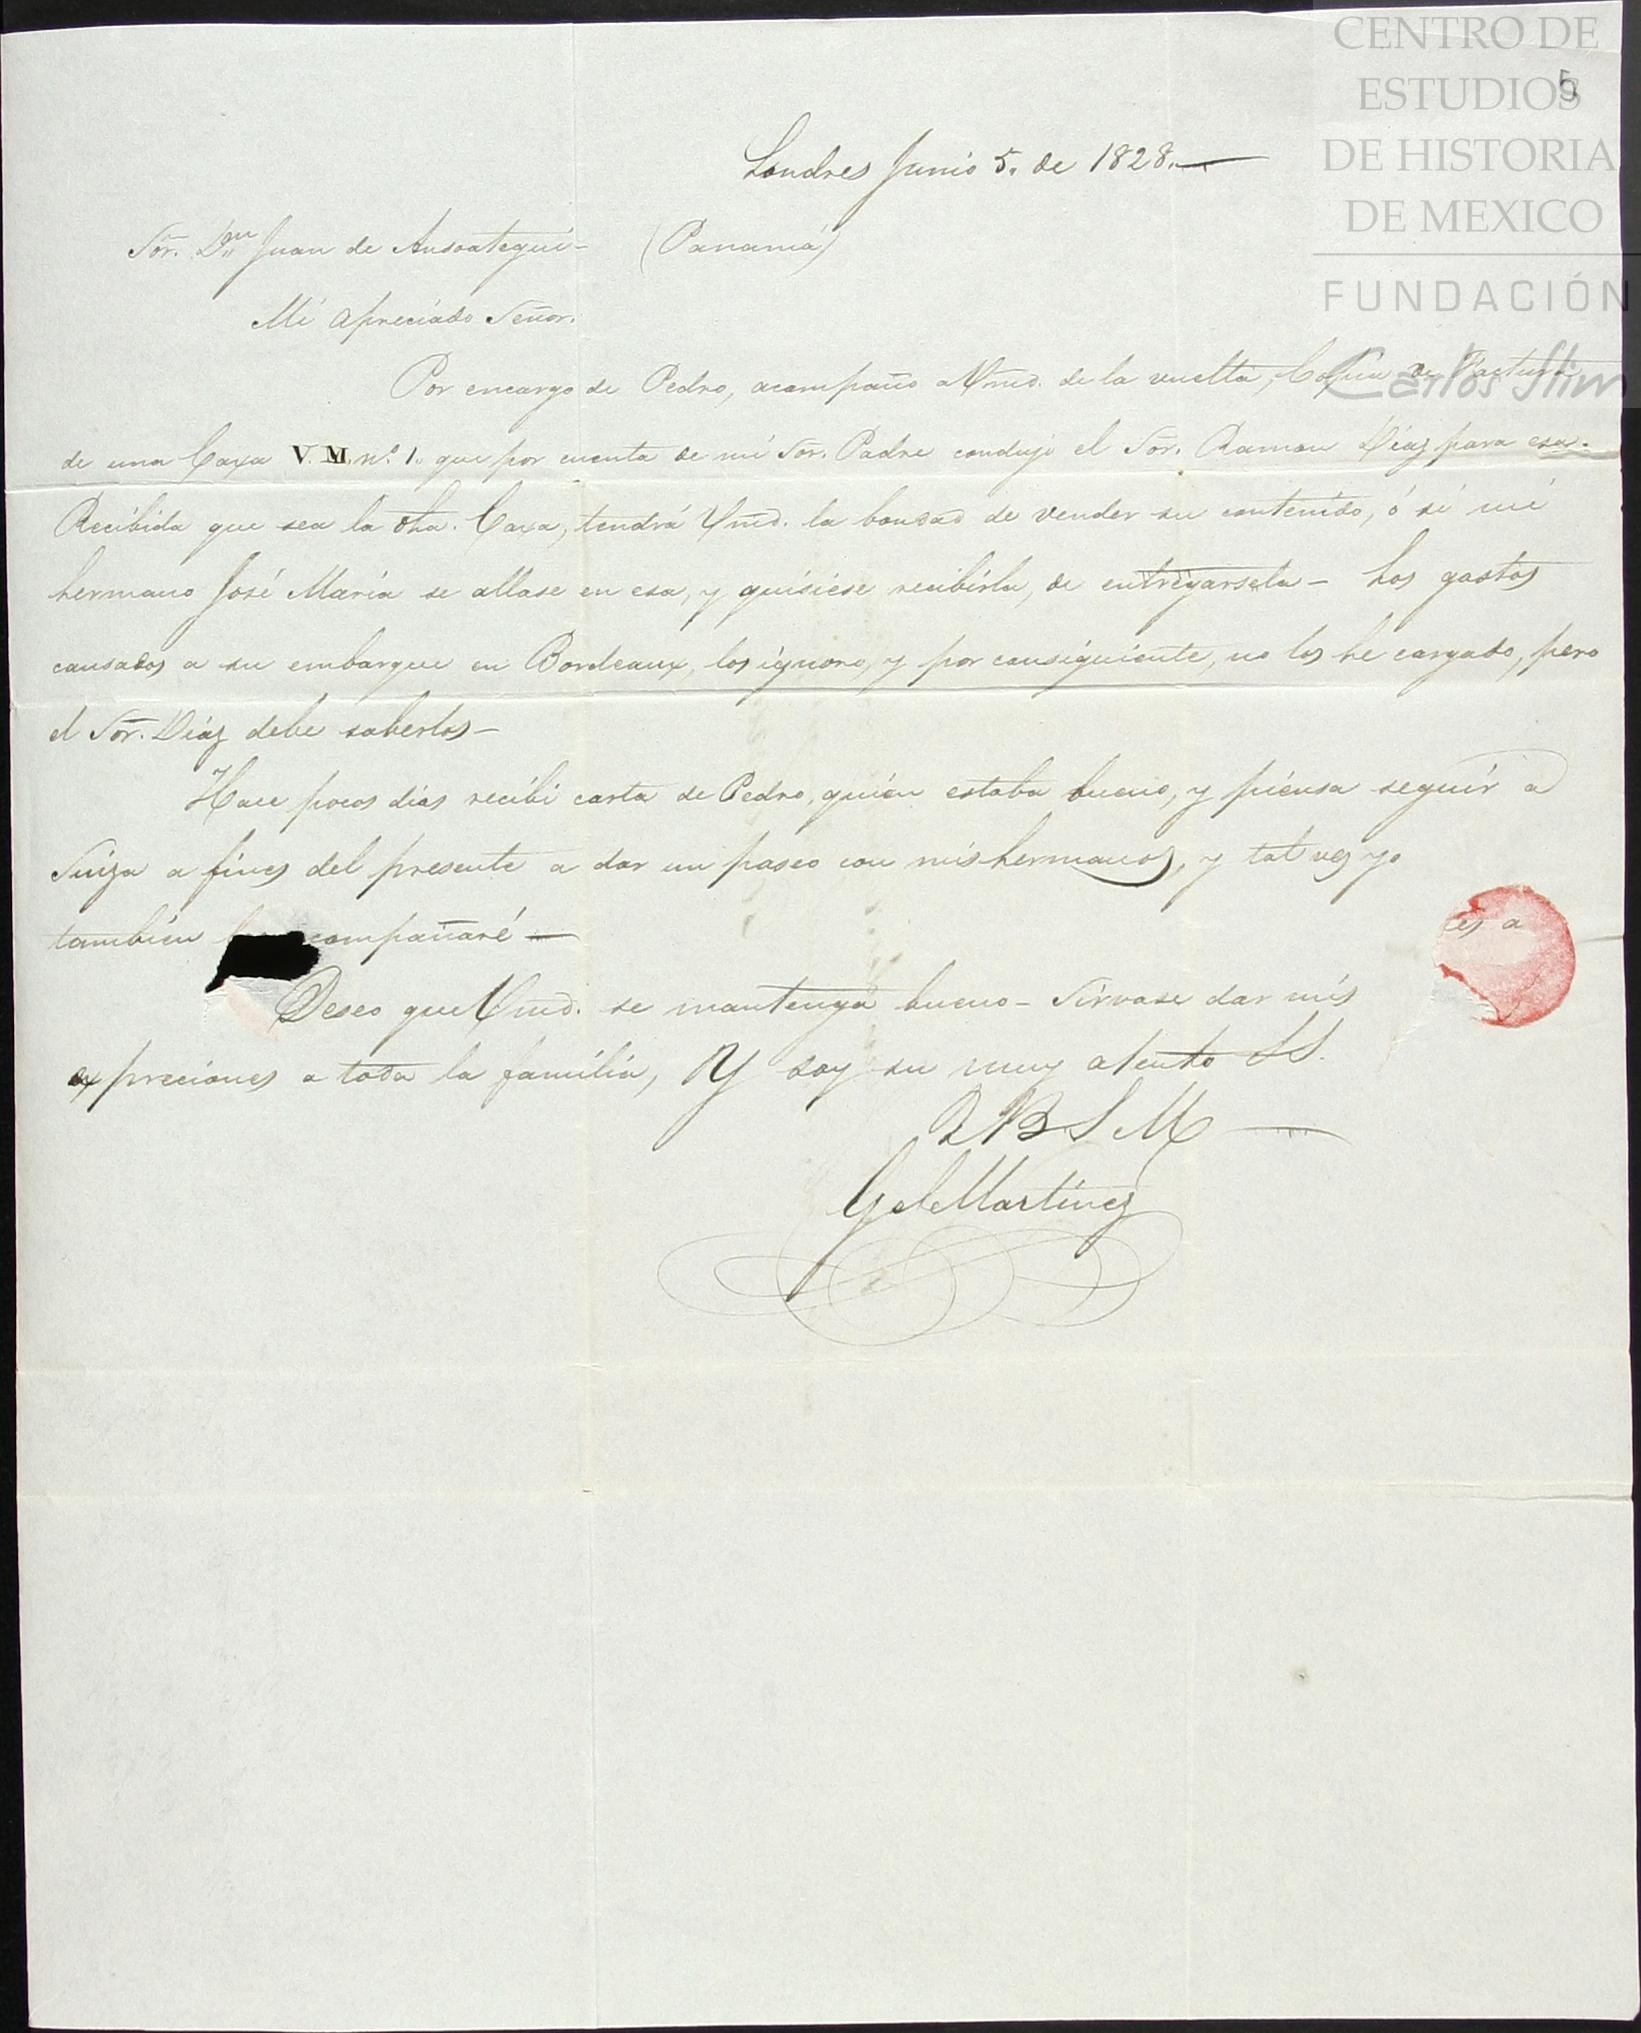 CENTRO DE
ESTUDIOS
DE HISTORIA
DE MEXICO
FUNDACIÓN
Carlos Slim
5
Londres Junio 5. de 1828.—
Sor. Dn. Juan de Ansoategui— (Panamá)
Mi apreciado Señor.
Por encargo de Pedro, acompaño a Vmd. de la vuelta, Copia de Factura
de una Caxa V. M. nº. 1. que por cuenta de mi Sor. Padre condujo el Sor. Ramon Díaz para esa.
Recibida que sea la dha. Caxa, tendrá Vmd. la bondad de vender su contenido, ó si mi
hermano José María se allase en esa, y quisiese recibirla, de entregarsela— Los gastos
causados a su embarque en Bordeaux, los ignoro, y por consiguiente, no los he cargado, pero
el Sor. Díaz debe saberlos—
Hace pocos días recibí carta de Pedro, quien estaba bueno, y piensa seguir a
Suiza a fines del presente a dar un paseo con mis hermanos, y tal vez yo
también compañaré—
es a
Deseo que Vmd. se mantenga bueno— Sirvase dar mis
expreciones a toda la familia, Y soy su muy atento SS.
Q B S M—
G de Martínez